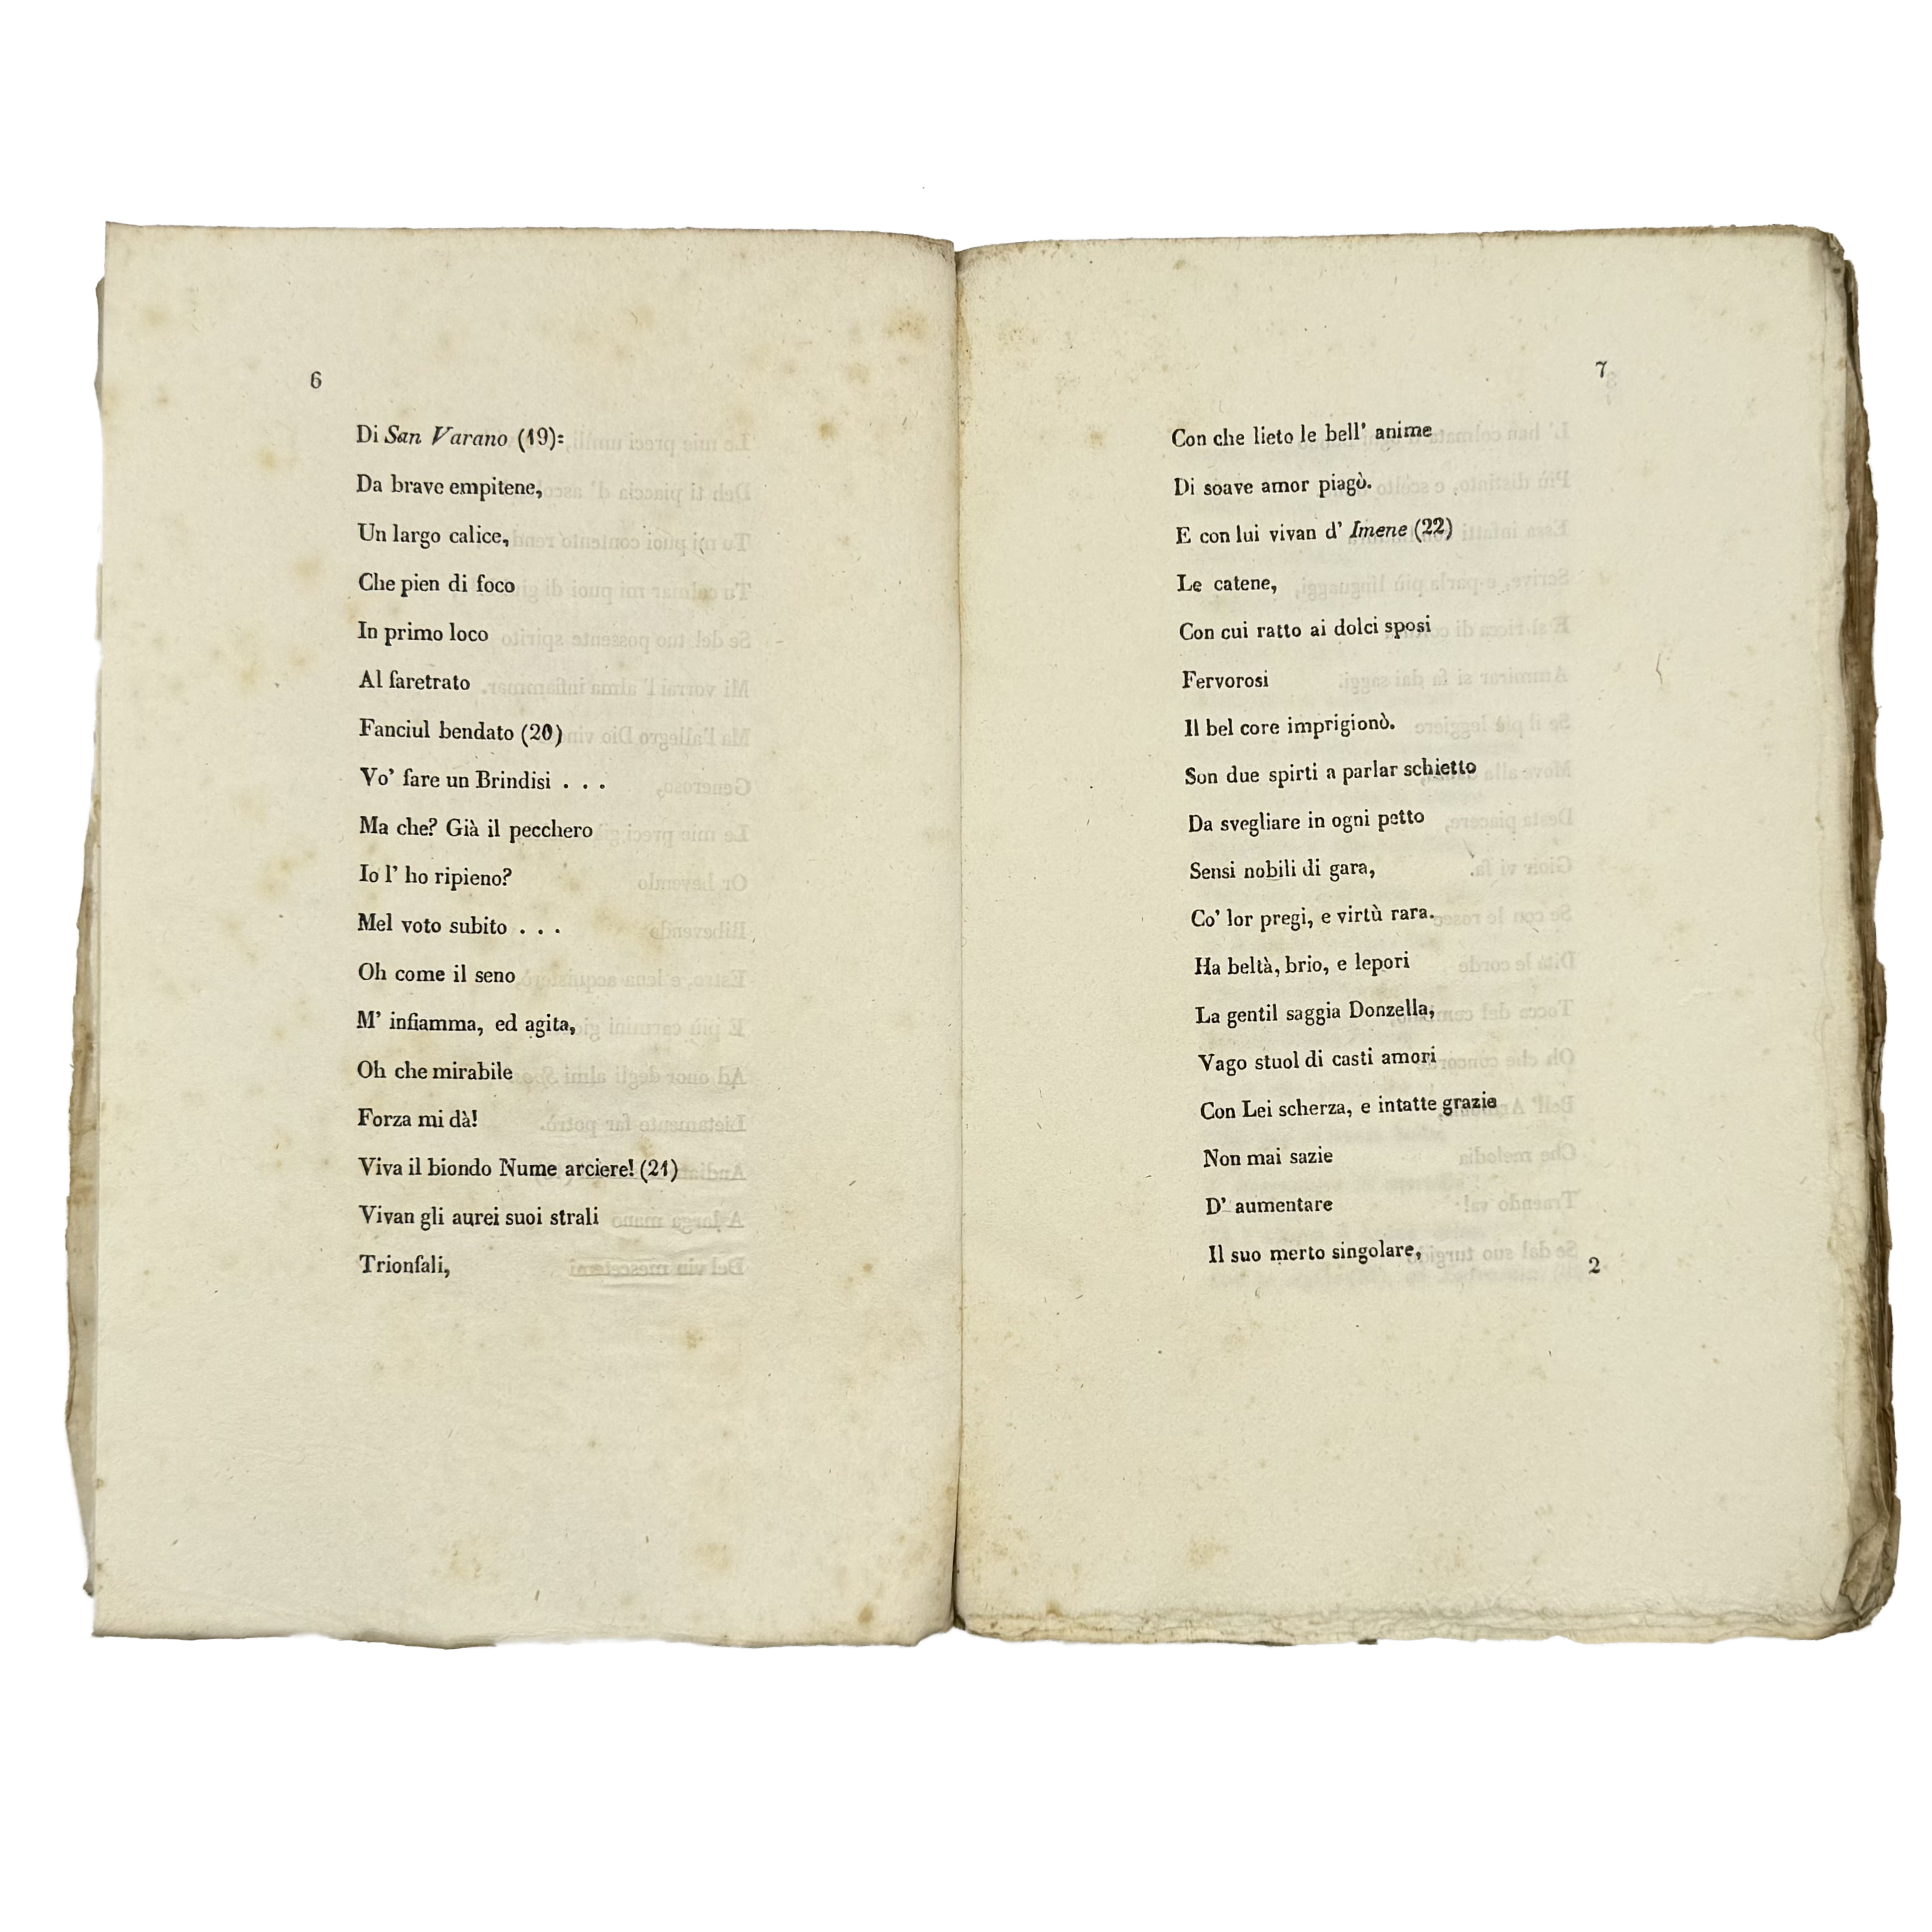 6
Di San Varano (19):
Da brave empitene,
Un largo calice,
Che pien di foco
In primo loco
Al faretrato
Fanciul bendato (20)
Vo' fare un Brindisi . . .
Ma che? Già il pecchero
Io l' ho ripieno?
Mel voto subito . . .
Oh come il seno
M' infiamma, ed agita,
Oh che mirabile
Forza mi dà!
Viva il biondo Nume arciere! (21)
Vivan gli aurei suoi strali
Trionfali,
7
Con che lieto le bell' anime
Di soave amor piagò.
E con lui vivan d' Imene (22)
Le catene,
Con cui ratto ai dolci sposi
Fervorosi
Il bel core imprigionò.
Son due spirti a parlar schietto
Da svegliare in ogni petto
Sensi nobili di gara,
Co' lor pregi, e virtù rara.
Ha beltà, brio, e lepori
La gentil saggia Donzella,
Vago stuol di casti amori
Con Lei scherza, e intatte grazie
Non mai sazie
D' aumentare
Il suo merto singolare,
2